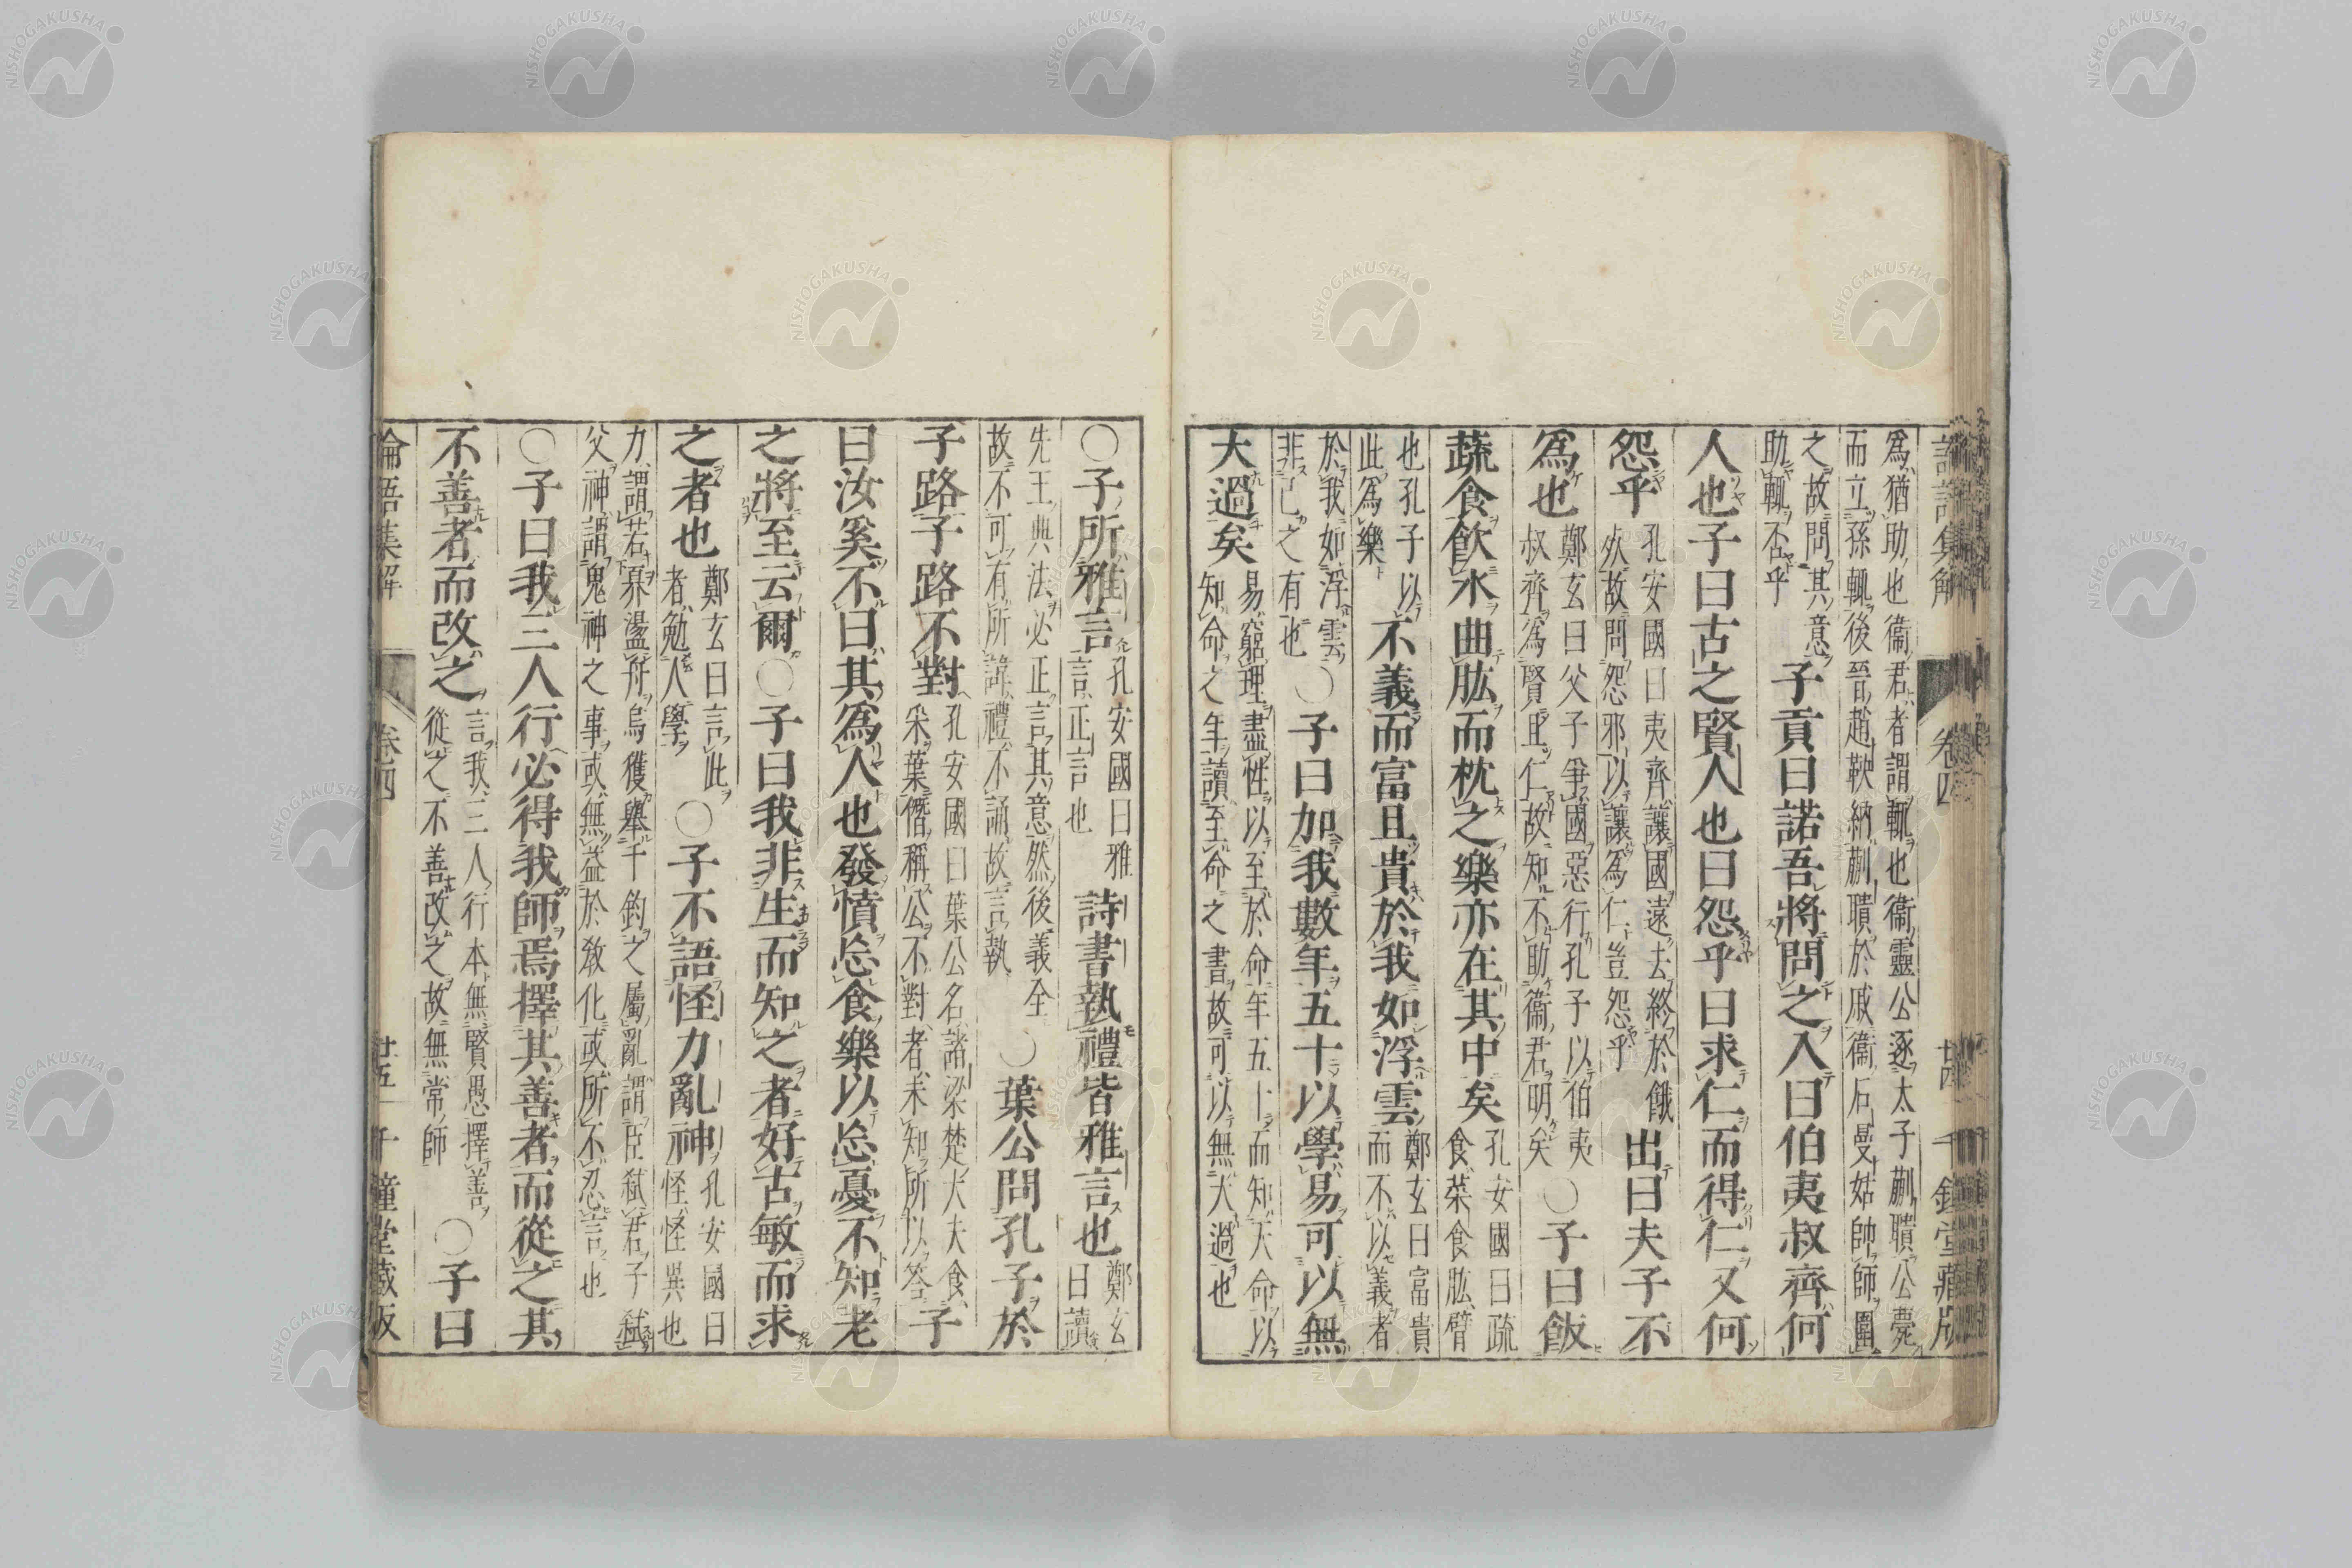 論語集解 卷四 廿四 千鍾堂藏版
爲猶助也衞君者謂輒也衞靈公逐太子蒯聵公薨
而立孫輒後晉趙鞅納蒯聵於戚衞石曼姑帥師圍
之故問其意
助輒不乎
子貢曰諾吾將問之入曰伯夷叔齊何
人也子曰古之賢人也曰怨乎曰求仁而得仁又何
怨乎
孔安國曰夷齊讓國遠去終於餓
死故問怨邪以讓爲仁豈怨乎
出曰夫子不
爲也
鄭玄曰父子爭國惡行孔子以伯夷
叔齊爲賢且仁故知不助衞君明矣
○子曰飯
蔬食飮水曲肱而枕之樂亦在其中矣
孔安國曰疏
食菜食肱臂
也孔子以
此爲樂
不義而富且貴於我如浮雲
鄭玄曰富貴
而不以義者
於我如浮雲
非己之有也
○子曰加我數年五十以學易可以無
大過矣
易窮理盡性以至於命年五十而知天命以
知命之年讀至命之書故可以無大過也
○子所雅言
孔安國曰雅
言正言也
詩書執禮皆雅言也
鄭玄
曰讀
先王典法必正言其意然後義全
故不可有所諱禮不誦故言執
○葉公問孔子於
子路子路不對
孔安國曰葉公名諸梁楚大夫食
采葉僭稱公不對者未知所以答
子
曰汝奚不曰其爲人也發憤忘食樂以忘憂不知老
之將至云爾○子曰我非生而知之者好古敏而求
之者也
鄭玄曰言此
者勉人學
○子不語怪力亂神
孔安國曰
怪怪異也
力謂若奡盪舟烏獲舉千鈞之屬亂謂臣弑君子弑
父神謂鬼神之事或無益於敎化或所不忍言也
○子曰我三人行必得我師焉擇其善者而從之其
不善者而改之
言我三人行本無賢愚擇善
從之不善改之故無常師
○子曰
論語集解 卷四 廿五 千鍾堂藏版
NISHOGAKUSHA